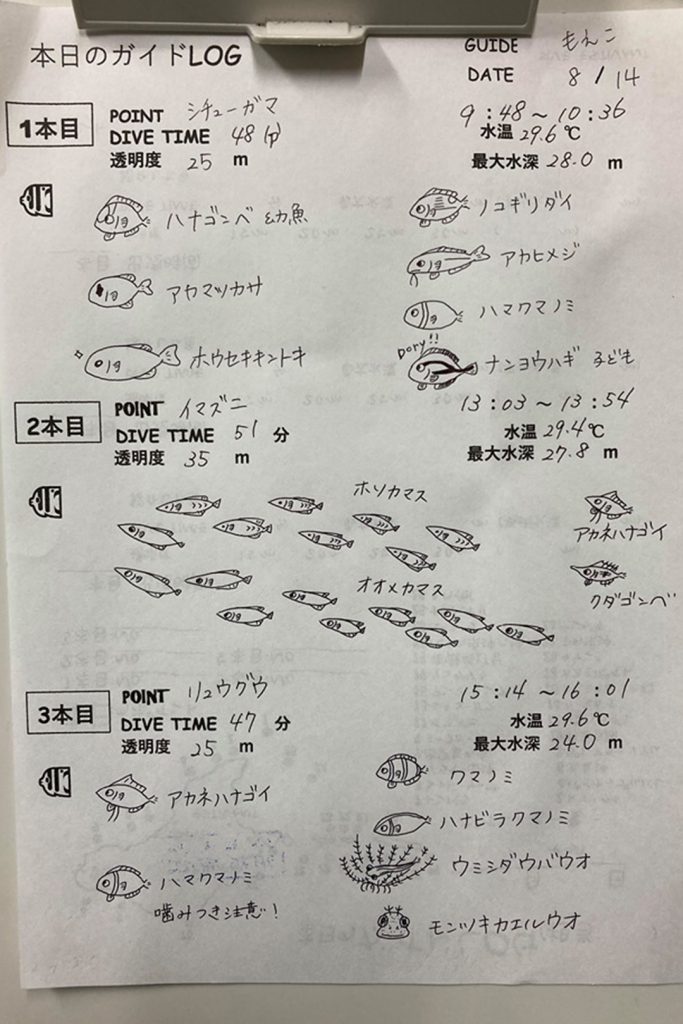 本日のガイドLOG
GUIDE もんこ
DATE 8/14
1本目
POINT シチューガマ
DIVE TIME 48 分
透明度 25 m
9:48～10:36
水温 29.6℃
最大水深 28.0 m
ハナゴンベ 幼魚
アカマツカサ
ホウセキキントキ
ノコギリダイ
アカヒメジ
ハマクマノミ
Dory!!
ナンヨウハギ 子ども
2本目
POINT イマズニ
DIVE TIME 51 分
透明度 35 m
13:03～13:54
水温 29.4℃
最大水深 27.8 m
ホソカマス
オオメカマス
アカネハナゴイ
クダゴンベ
3本目
POINT リュウグウ
DIVE TIME 47 分
透明度 25 m
15:14～16:01
水温 29.6℃
最大水深 24.0 m
アカネハナゴイ
ハマクマノミ
噛みつき注意!
クマノミ
ハナビラクマノミ
ウミシダウバウオ
モンツキカエルウオ